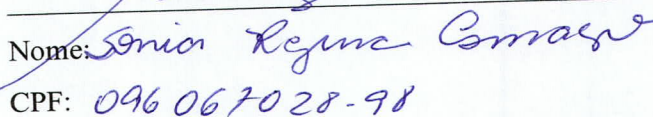 Nome: Sonia Regina Camargo
CPF: 096 067028-98